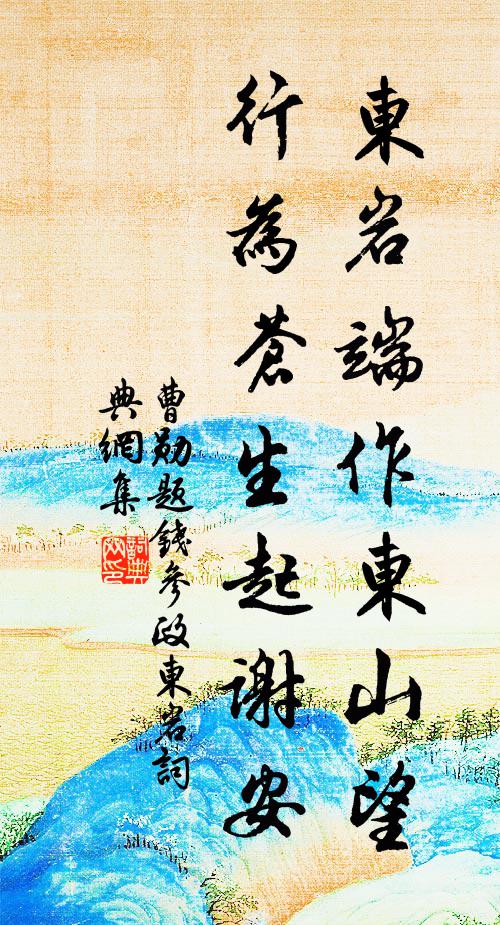 東岩端作東山望
行為蒼生起謝安
曹勛題錢參政東岩詞
典網集
詞典網印